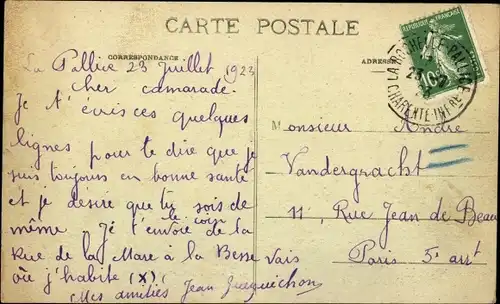 CARTE POSTALE
CORRESPONDANCE
ADRESSE
La Pallice 23 Juillet 1923
cher camarade.
Je t'écris ces quelques
lignes pour te dire que je
suis toujours en bonne santé
et je desire que tu sois de
même. Je t'envoie le coin de la
Rue de la Mare à la Besse
où j'habite (X)
Mes amitiés Jean
Monsieur Andre
Vandergracht
11, Rue Jean de Beau
vais
Paris 5e arrt
REPUBLIQUE FRANÇAISE
10c
LA ROCHELLE-PALLICE
CHARENTE-INFRE